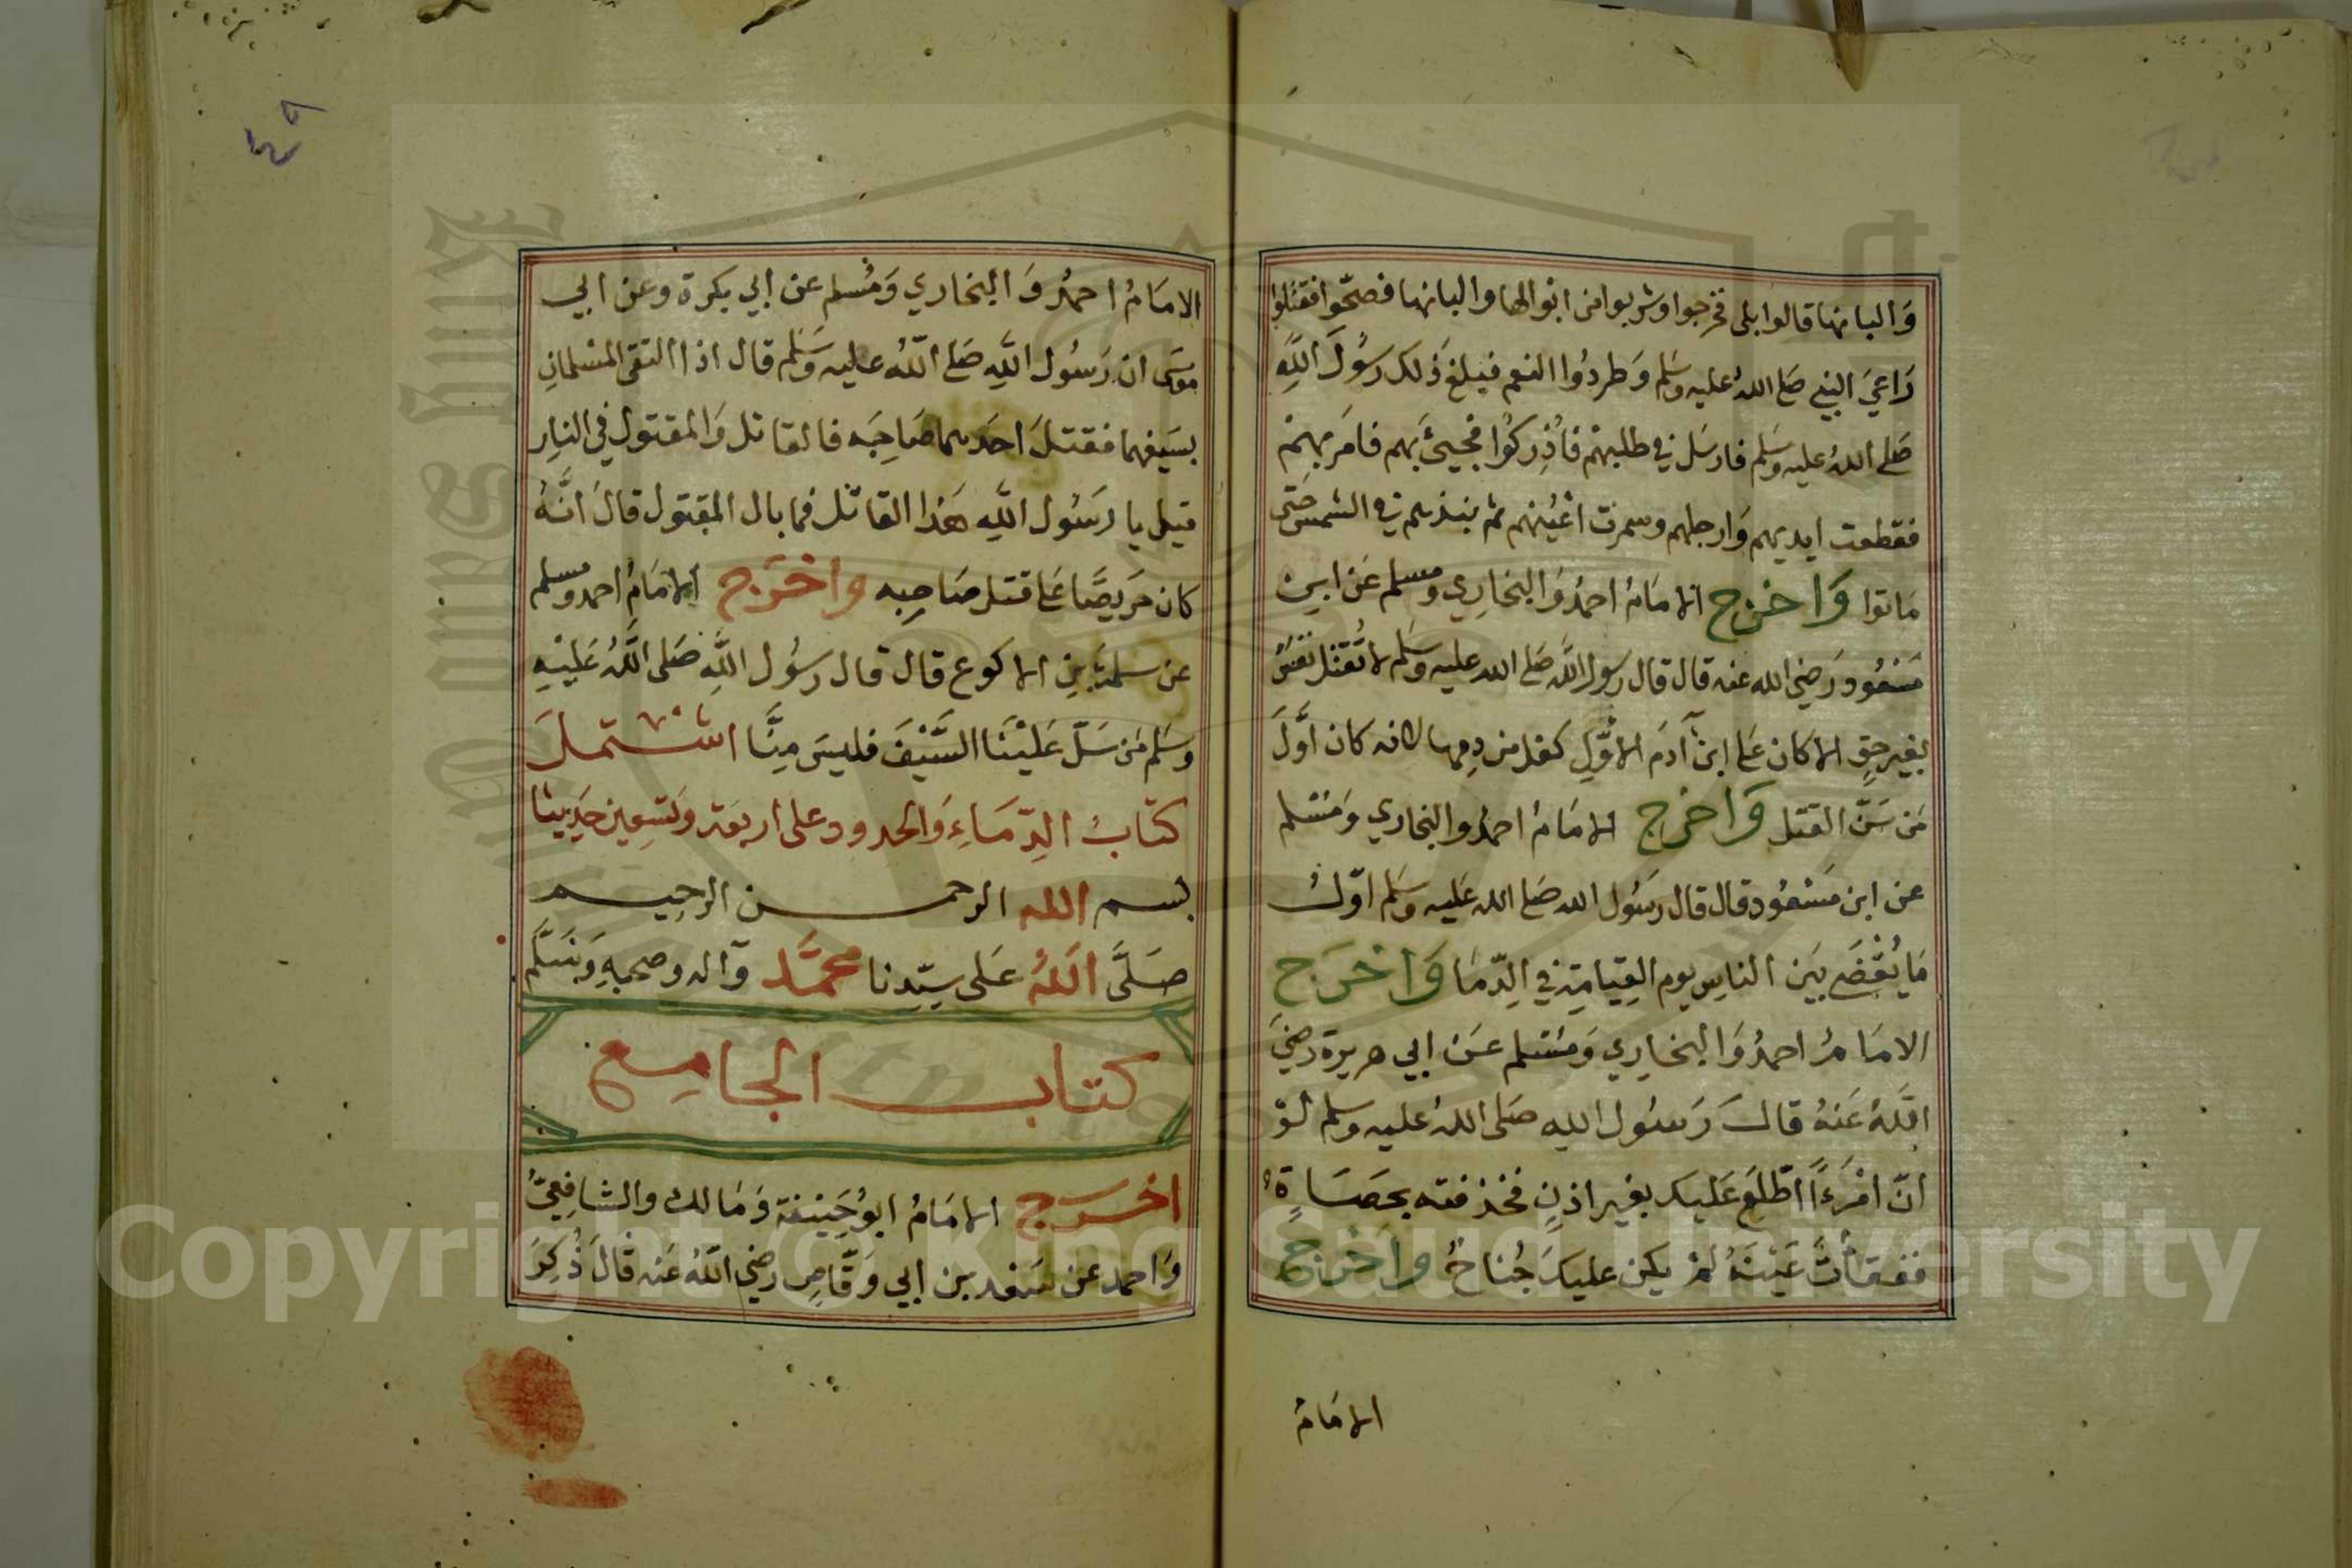 وَالبانها قالوا بلى فخرجوا وشربوا من ابوالها والبانها فصحّوا فقتلوا
رَاعيَ النبي صَلى اللهُ عليه وسَلم وَطردُوا النعم فبلغ ذَلك رسُولَ اللَّهِ
صَلى اللهُ عليه وسَلم فارسَل في طلبهمْ فاُدْرِكُوا فجيئَ بهم فامَر بهمْ
فقطعت ايديهم وَارجلهم وسمرت اعْيُنهم ثم نبذهم في الشمس حَتى
مَاتوا وَاخرج الامَامُ احمدُ وَالبخَارِي ومسلم عَن ابن
مَسْعُود رَضي الله عنه قال قال رسول اللَّه صَلى الله عليه وسَلم لا تُقتَل نفسٌ
بغير حقٍ الا كان عَلى ابن آدمَ الاوَّلِ كفل من دمِها لانه كان اَوَّلَ
مَن سَنَّ القتل وَاخرج الامَامُ احمدُ والبخاري وَمُسْلم
عن ابن مَسْعُود قال قال رسُول الله صَلى الله عَليه وسَلم اوّلُ
مَا يُقْضَى بَين الناسِ يوم القِيَامَةِ في الدِّمَا وَاخرَج
الامَامُ احمدُ وَالبخَارِي وَمُسْلم عَن ابي هريرة رضيَ
اللَّهُ عَنهُ قالَ رَسُول الله صَلى اللهُ عليه وسلم لوْ
انّ امْرَءًا اطّلعَ عَليك بغير اذنٍ فخذفته بحصَاةٍ
ففقأتَ عَيْنَهُ لمْ يكن عليكَ جُناحٌ واخرج
الامَامُ
٤٥
الامَامُ احمدُ وَالبخاري وَمُسلم عن ابي بكرة وعن ابي
موسَى ان رَسُول اللَّهِ صَلى اللّهُ عليه وسَلم قال اذا التقى المسْلمانِ
بسَيفهما فقتلَ احَدهما صَاحِبَه فالقاتل وَالمقتول في النارِ
قيل يا رسَُول اللَّهِ هَذا القاتل فما بال المقتول قالَ انَّهُ
كان حَريصًا عَلى قتل صَاحِبه واخرَج الامَامُ احمد ومسلم
عن سلمة بنِ الاكوع قال قال رسُول اللَّهِ صَلى اللَّهُ عَليْهِ
وسَلم مَن سَلّ عَليْنَا السَّيْفَ فليسَ مِنَّا اشتملَ
كتابُ الدِّمَاءِ وَالحدود على اربعَة وَتسِعين حَديثا
بسم الله الرحمن الرحيم
صَلَّى اللهُ عَلى سيّدنا محمَّد وآله وصحبهِ وَسَلَّم
كتاب الجامِع
اخرج الامَامُ ابوُ حَنِيفة وَمَالك والشافِعيُّ
وَاحمد عن سَعْد بن ابي وَقّاصٍ رضي اللّهُ عَنه قالَ ذُكِرَ
Copyright © King Saud University